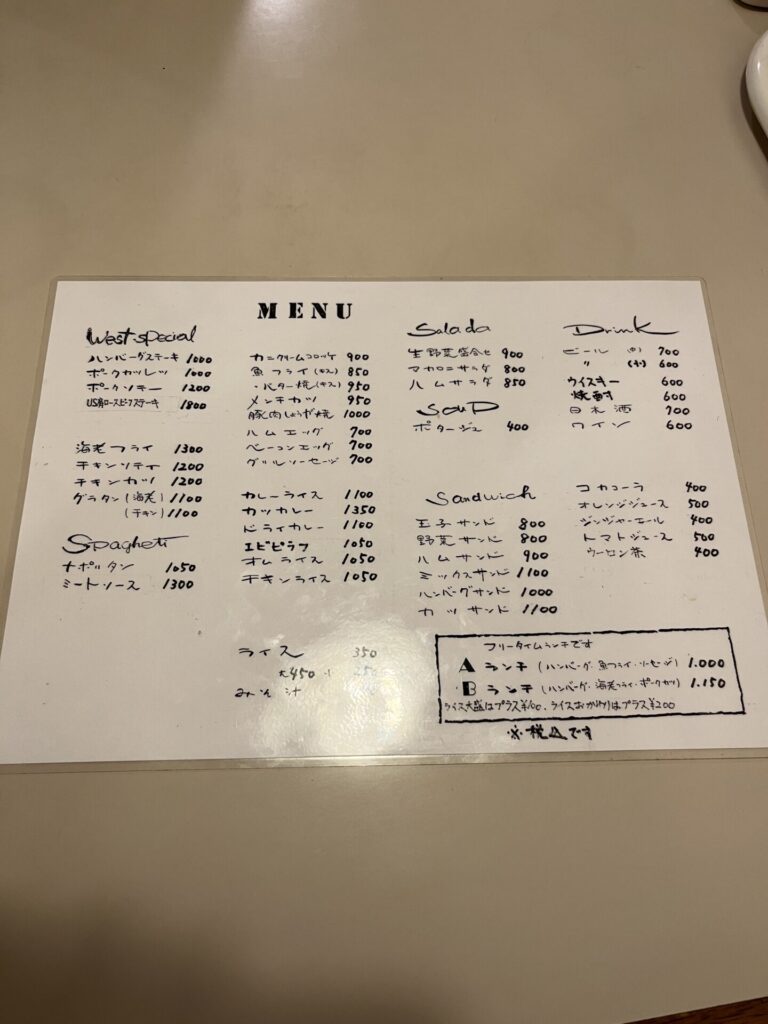 MENU
West special
ハンバーグステーキ 1000
ポークカツレツ 1000
ポークソテー 1200
US肩ロースビーフステーキ 1800
海老フライ 1300
チキンソティ 1200
チキンカツ 1200
グラタン(海老) 1100
(チキン) 1100
Spaghetti
ナポリタン 1050
ミートソース 1300
カニクリームコロッケ 900
魚フライ(キス) 850
〃バター焼(キス) 950
メンチカツ 950
豚肉しょうが焼 1000
ハムエッグ 700
ベーコンエッグ 700
グリルソーセージ 700
カレーライス 1100
カツカレー 1350
ドライカレー 1100
エビピラフ 1050
オムライス 1050
チキンライス 1050
ライス 350
大450 小 250
みそ汁
Salada
生野菜盛合せ 900
マカロニサラダ 800
ハムサラダ 850
Soup
ポタージュ 400
Sandwich
玉子サンド 800
野菜サンド 800
ハムサンド 900
ミックスサンド 1100
ハンバーグサンド 1000
カツサンド 1100
Drink
ビール (中) 700
〃 (小) 600
ウイスキー 600
焼酎 600
日本酒 700
ワイン 600
コカコーラ 400
オレンジジュース 500
ジンジャーエール 400
トマトジュース 500
ウーロン茶 400
フリータイムランチです
A ランチ (ハンバーグ・魚フライ・ソーセージ) 1.000
B ランチ (ハンバーグ・海老フライ・ポークカツ) 1.150
ライス大盛はプラス¥100、ライスおかわりはプラス¥200
※税込です